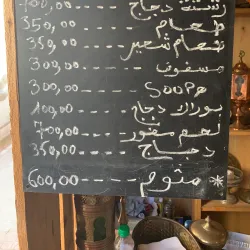 رشتة دجاج ----- 400,00
طعام ----- 350,00
طعام شعير --- 350,00
مسفوف ----- 300,00
SOUPe ----- 300,00
بوراك دجاج ---- 100,00
لحم مفور --- 700,00
دجاج ----- 350,00
* مثوم ----- 600,00